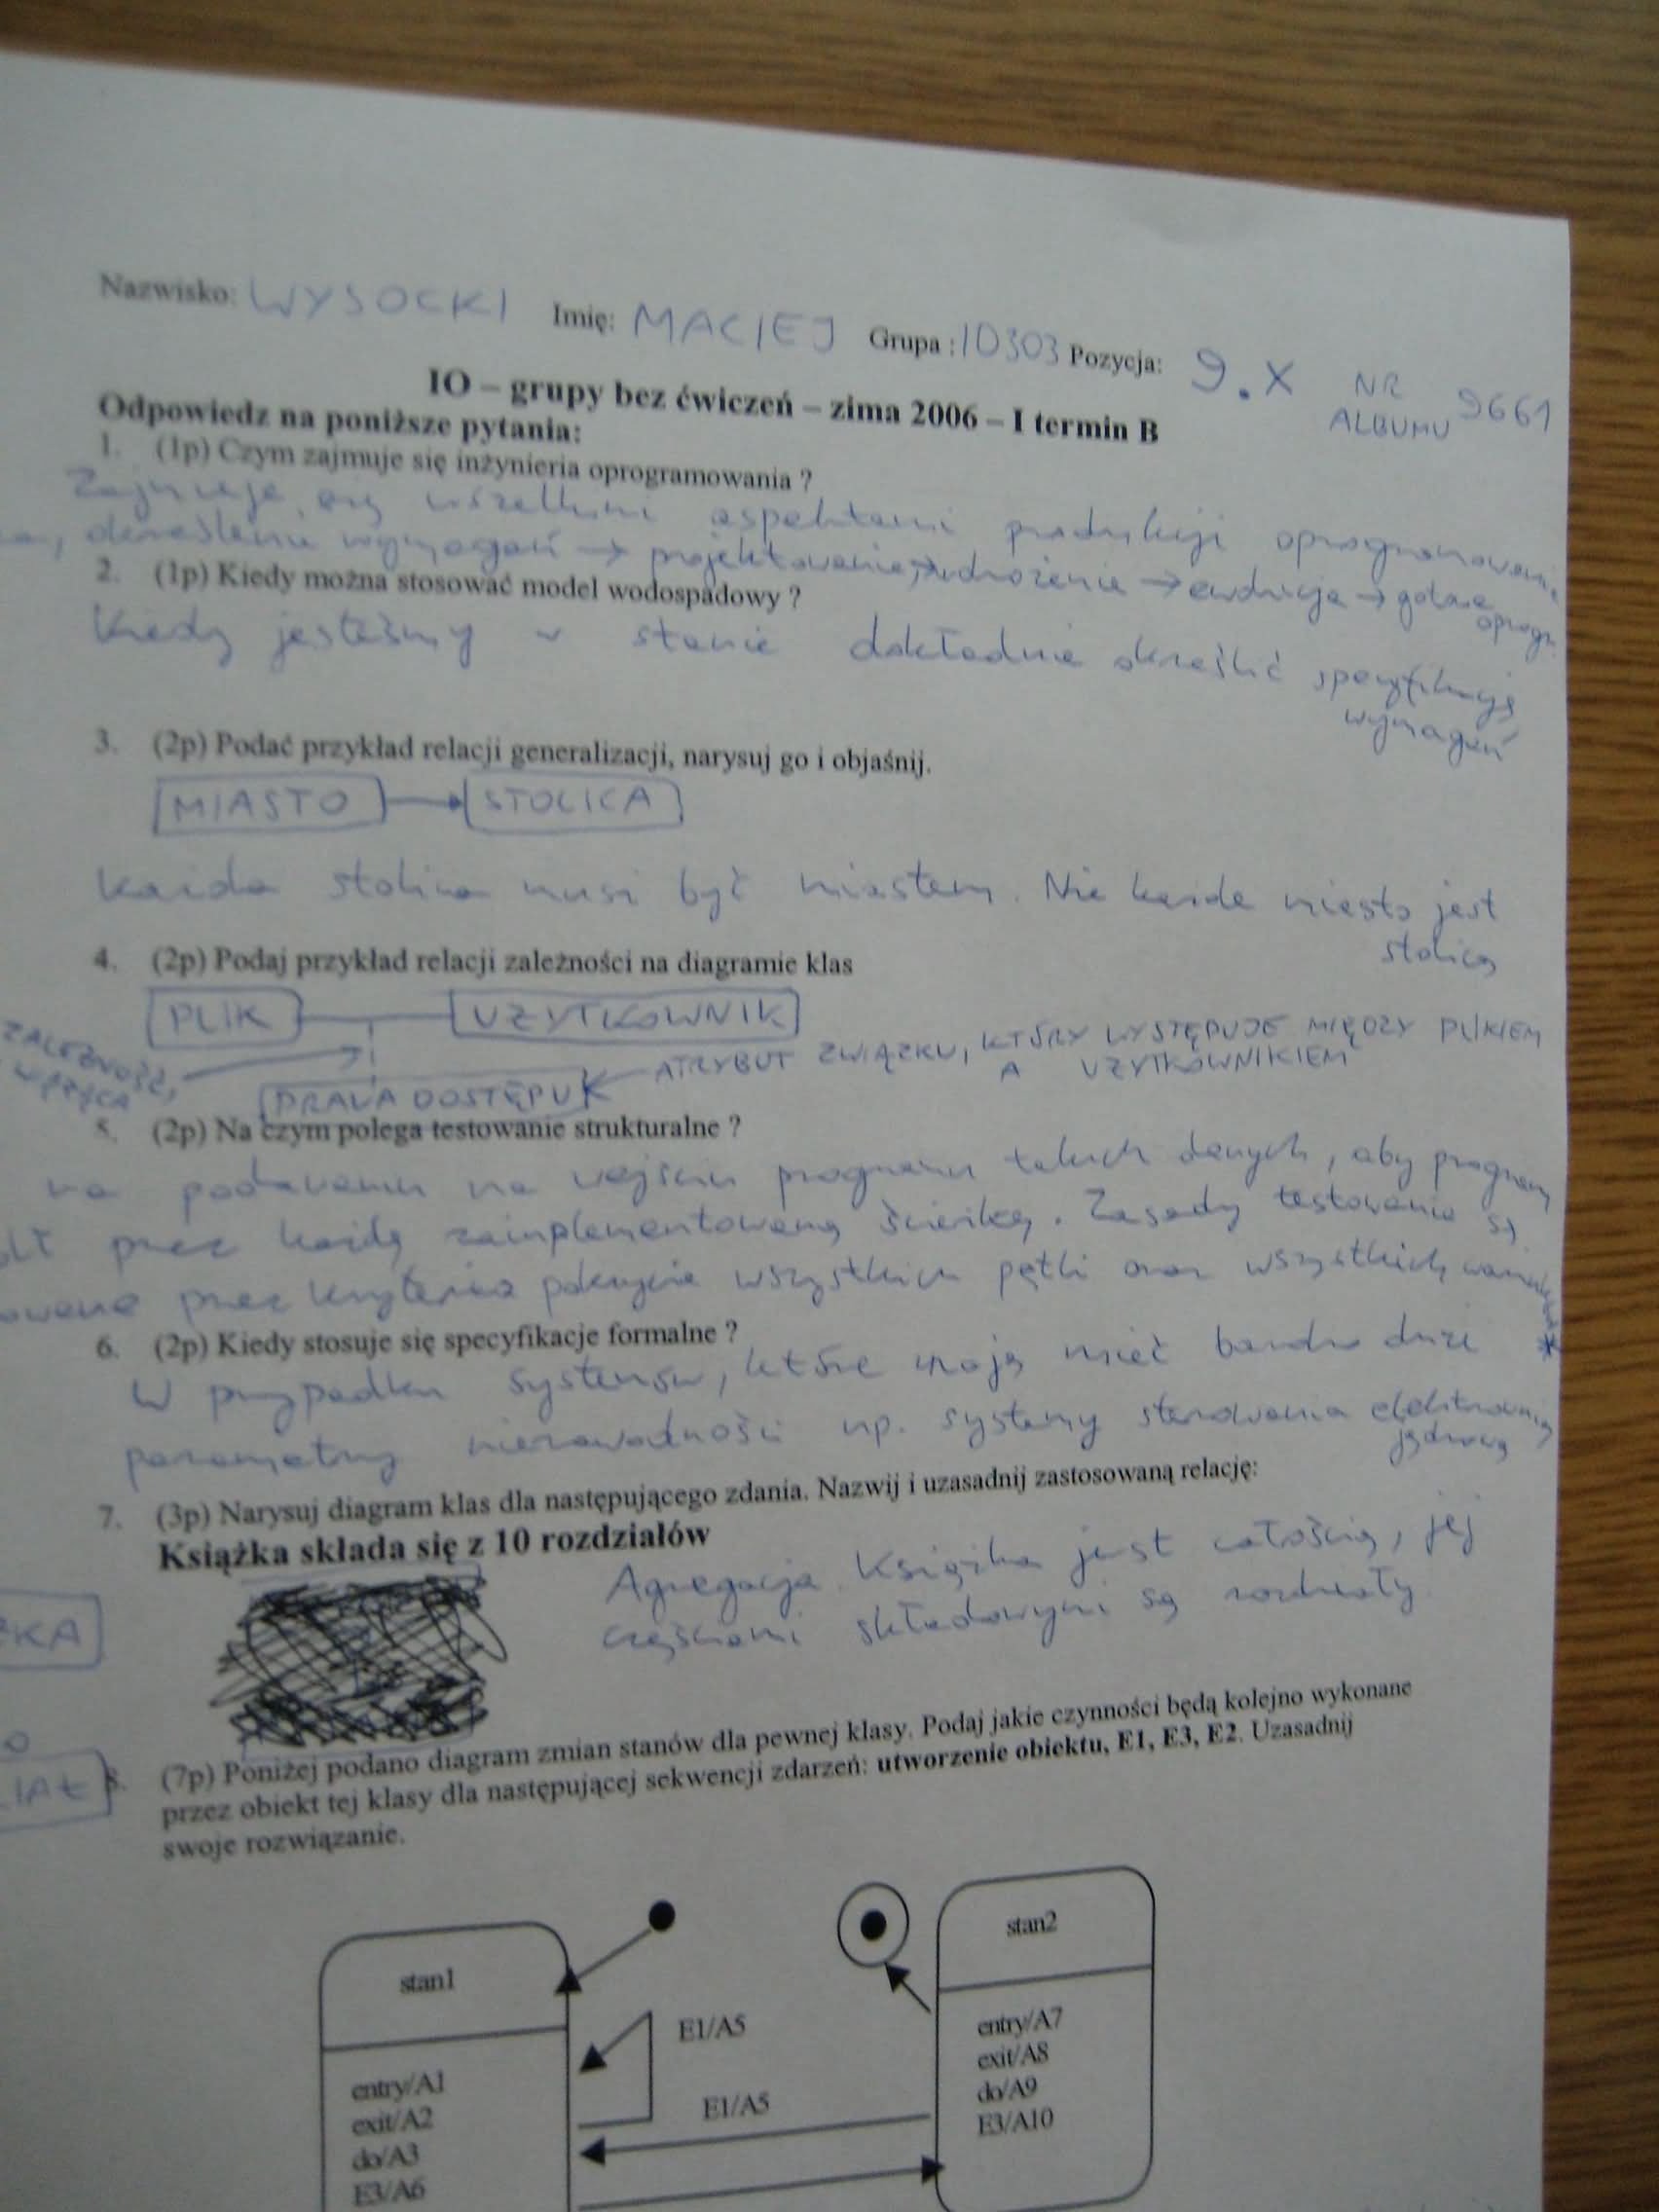 Nazwisko: WYSOCKI Imię: MACIEJ Grupa : ID303 Pozycja: 9.X NR ALBUMU 9661
IO – grupy bez ćwiczeń – zima 2006 – I termin B
Odpowiedz na poniższe pytania:
1. (1p) Czym zajmuje się inżynieria oprogramowania ?
Zajmuje się wszelkimi aspektami produkcji oprogramowania
określenie wymagań → projektowanie → wdrożenie → ewolucja → gotowe oprogr.
2. (1p) Kiedy można stosować model wodospadowy ?
Kiedy jesteśmy w stanie dokładnie określić specyfikację
wymagań
3. (2p) Podać przykład relacji generalizacji, narysuj go i objaśnij.
MIASTO STOLICA
Każda stolica musi być miastem. Nie każde miasto jest
stolicą
4. (2p) Podaj przykład relacji zależności na diagramie klas
PLIK UŻYTKOWNIK
ZALEŻNOŚĆ,
PRAWA DOSTĘPU ATRYBUT ZWIĄZKU, KTÓRY WYSTĘPUJE MIĘDZY PLIKIEM
A UŻYTKOWNIKIEM
5. (2p) Na czym polega testowanie strukturalne ?
na podawaniu na wejściu programu takich danych, aby program
przez każdą zaimplementowaną ścieżkę. Zasady testowania są
przez kryteria pokrycia wszystkich pętli oraz wszystkich warunków *
6. (2p) Kiedy stosuje się specyfikacje formalne ?
W przypadku systemów, które mają mieć bardzo duże
parametry niezawodności np. systemy sterowania elektrownią
jądrową
7. (3p) Narysuj diagram klas dla następującego zdania. Nazwij i uzasadnij zastosowaną relację:
Książka składa się z 10 rozdziałów
Agregacja. Książka jest całością, jej
częściami składowymi są rozdziały
8. (7p) Poniżej podano diagram zmian stanów dla pewnej klasy. Podaj jakie czynności będą kolejno wykonane
przez obiekt tej klasy dla następującej sekwencji zdarzeń: utworzenie obiektu, E1, E3, E2. Uzasadnij
swoje rozwiązanie.
stan1
entry/A1
exit/A2
do/A3
E3/A6
E1/A5
E1/A5
stan2
entry/A7
exit/A8
do/A9
E3/A10